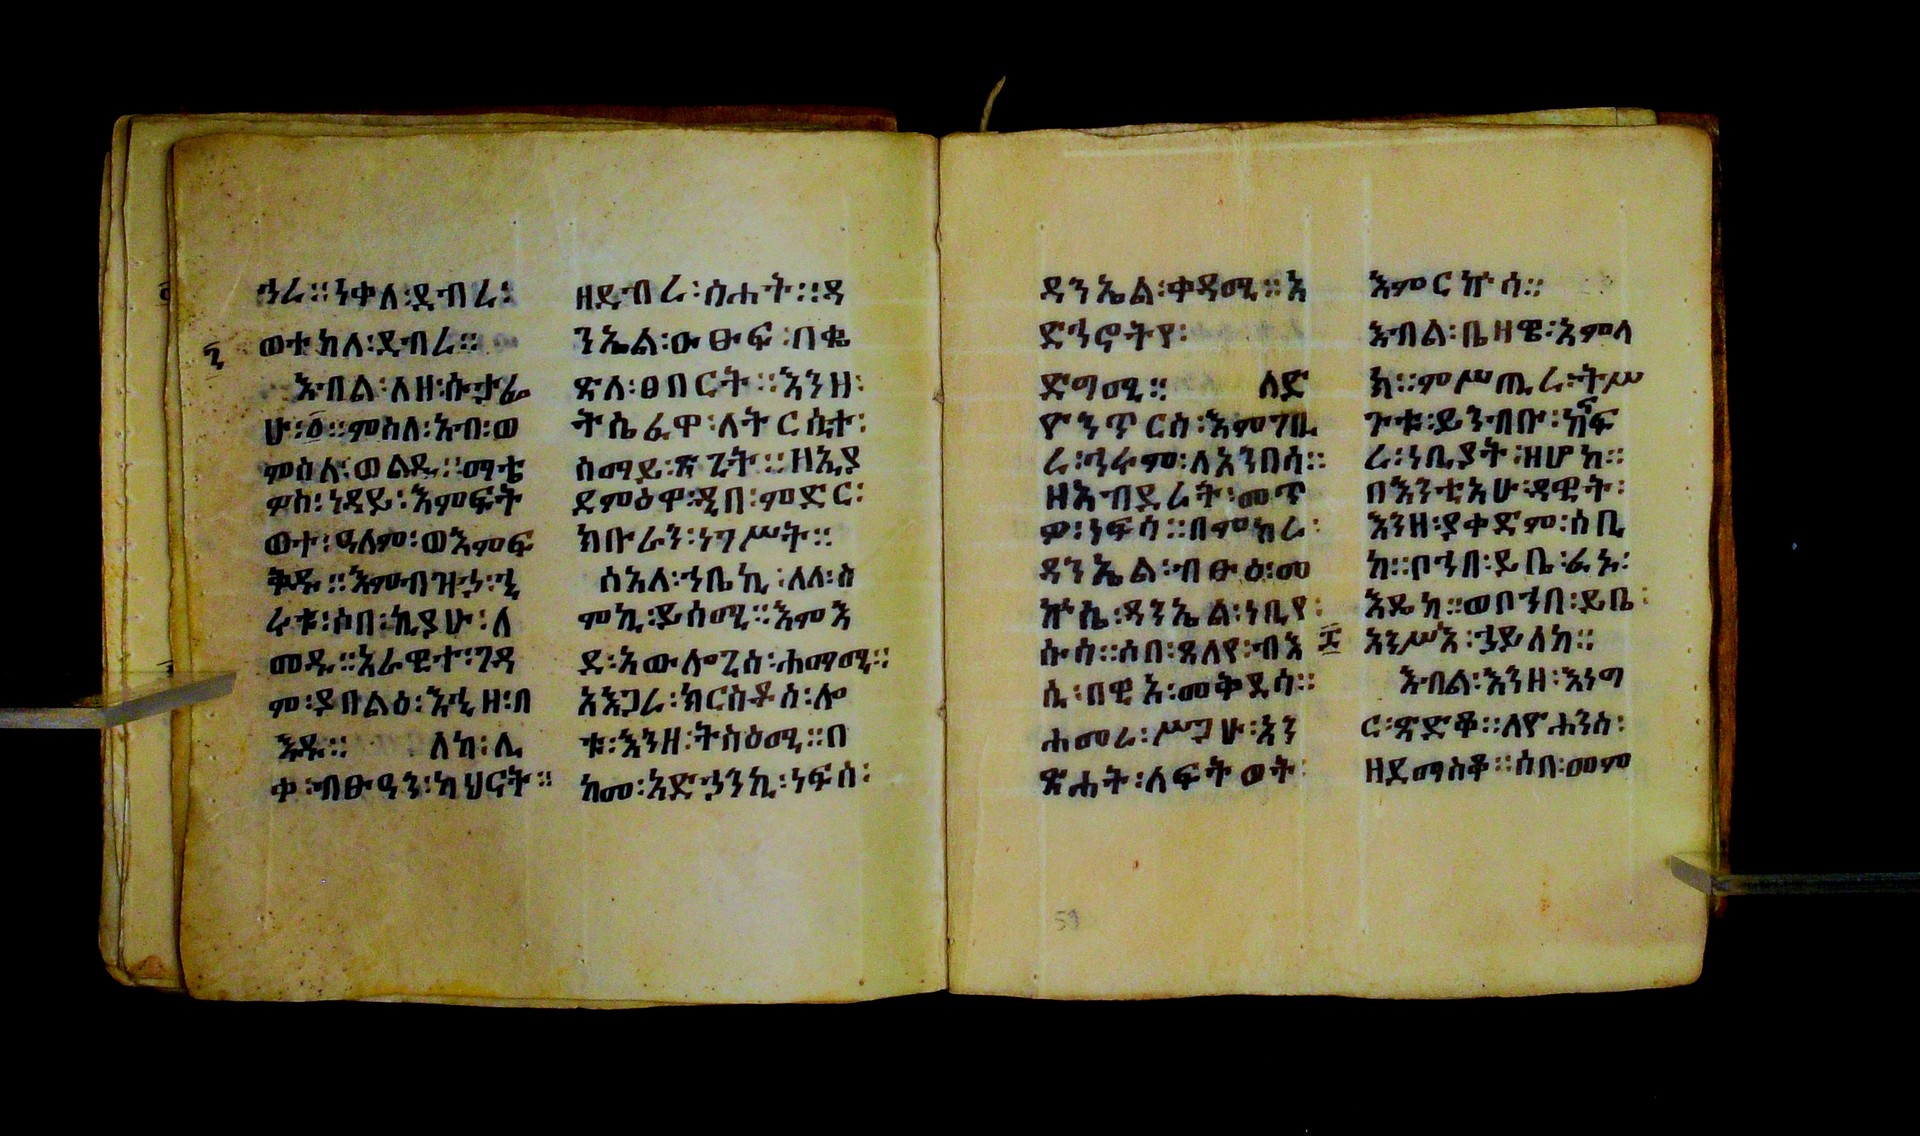 ኀሪ። ነቀለ፡ ደብረ፡
ወተከለ፡ ደብረ።
እብል፡ ለዘ፡ ሱታፌ
ሁ፡ ፩። ምስለ፡ አብ፡ ወ
ምስለ፡ ወልዱ። ማቴ
ዎስ፡ ነዳይ፡ እምፍት
ወተ፡ ዓለም፡ ወእምፍ
ቅዱ። እምብዝኃ፡ ኂ
ሩቱ፡ ሶበ፡ ኪያሁ፡ ለ
መዱ። አራዊተ፡ ገዳ
ም፡ ይበልዕ፡ እኂዘ፡ በ
እዱ። ለከ፡ ሊ
ቀ፡ ብፁዓን፡ ካህናት።
ዘደብረ፡ ስሐት። ዳ
ንኤል፡ ውፁፍ፡ በቈ
ጽለ፡ ፀበርት። እንዘ፡
ትሴፈዋ፡ ለትርሲተ፡
ሰማይ፡ ጽጌት። ዘኢያ
ደምዕዋ፡ ዲበ፡ ምድር፡
ክቡራን፡ ነገሥት።
ሰአለ፡ ኀቤኪ፡ ለለ፡ ስ
ምኪ፡ ይሰሚ። እምእ
ደ፡ አውሎጊስ፡ ሐማሚ።
አእጋረ፡ ክርስቶስ፡ ሎ
ቱ፡ እንዘ፡ ትስዕሚ። በ
ከመ፡ አድኃንኪ፡ ነፍሰ፡
ዳንኤል፡ ቀዳሚ። አ
ድኅኖትየ፡
ድግሚ። ለድ
ዮንጥርስ፡ እምገቢ
ረ፡ ኄራም፡ ለአንበሳ።
ዘአብደረት፡ መጥ
ዎ፡ ነፍሳ። በምክረ፡
ዳንኤል፡ ብፁዕ፡ መ
ኵሴ፡ ዳንኤል፡ ነቢየ፡
ሱሳ። ሶበ፡ ጸለየ፡ ብእ
ሲ፡ በዊአ፡ መቅደሳ።
ሐመረ፡ ሥጋሁ፡ እን
ጽሐት፡ ለፍትወት፡
እምርኵሳ።
እብል፡ ቤዛዌ፡ እምላ
ክ። ምሥጢረ፡ ትሥ
ጉቱ፡ ይንብቡ፡ ከናፍ
ረ፡ ነቢያት፡ ዘሆከ።
በእንቲአሁ፡ ዳዊት፡
እንዘ፡ ያቀድም፡ ሰቢ
ከ። ቦኀበ፡ ይቤ፡ ፈኑ፡
እዴከ። ወቦኀበ፡ ይቤ፡
አንሥእ፡ ኃይለከ።
እብል፡ እንዘ፡ እነግ
ር፡ ጻድቆ። ለዮሐንስ፡
ዘደማስቆ። ሶበ፡ መም